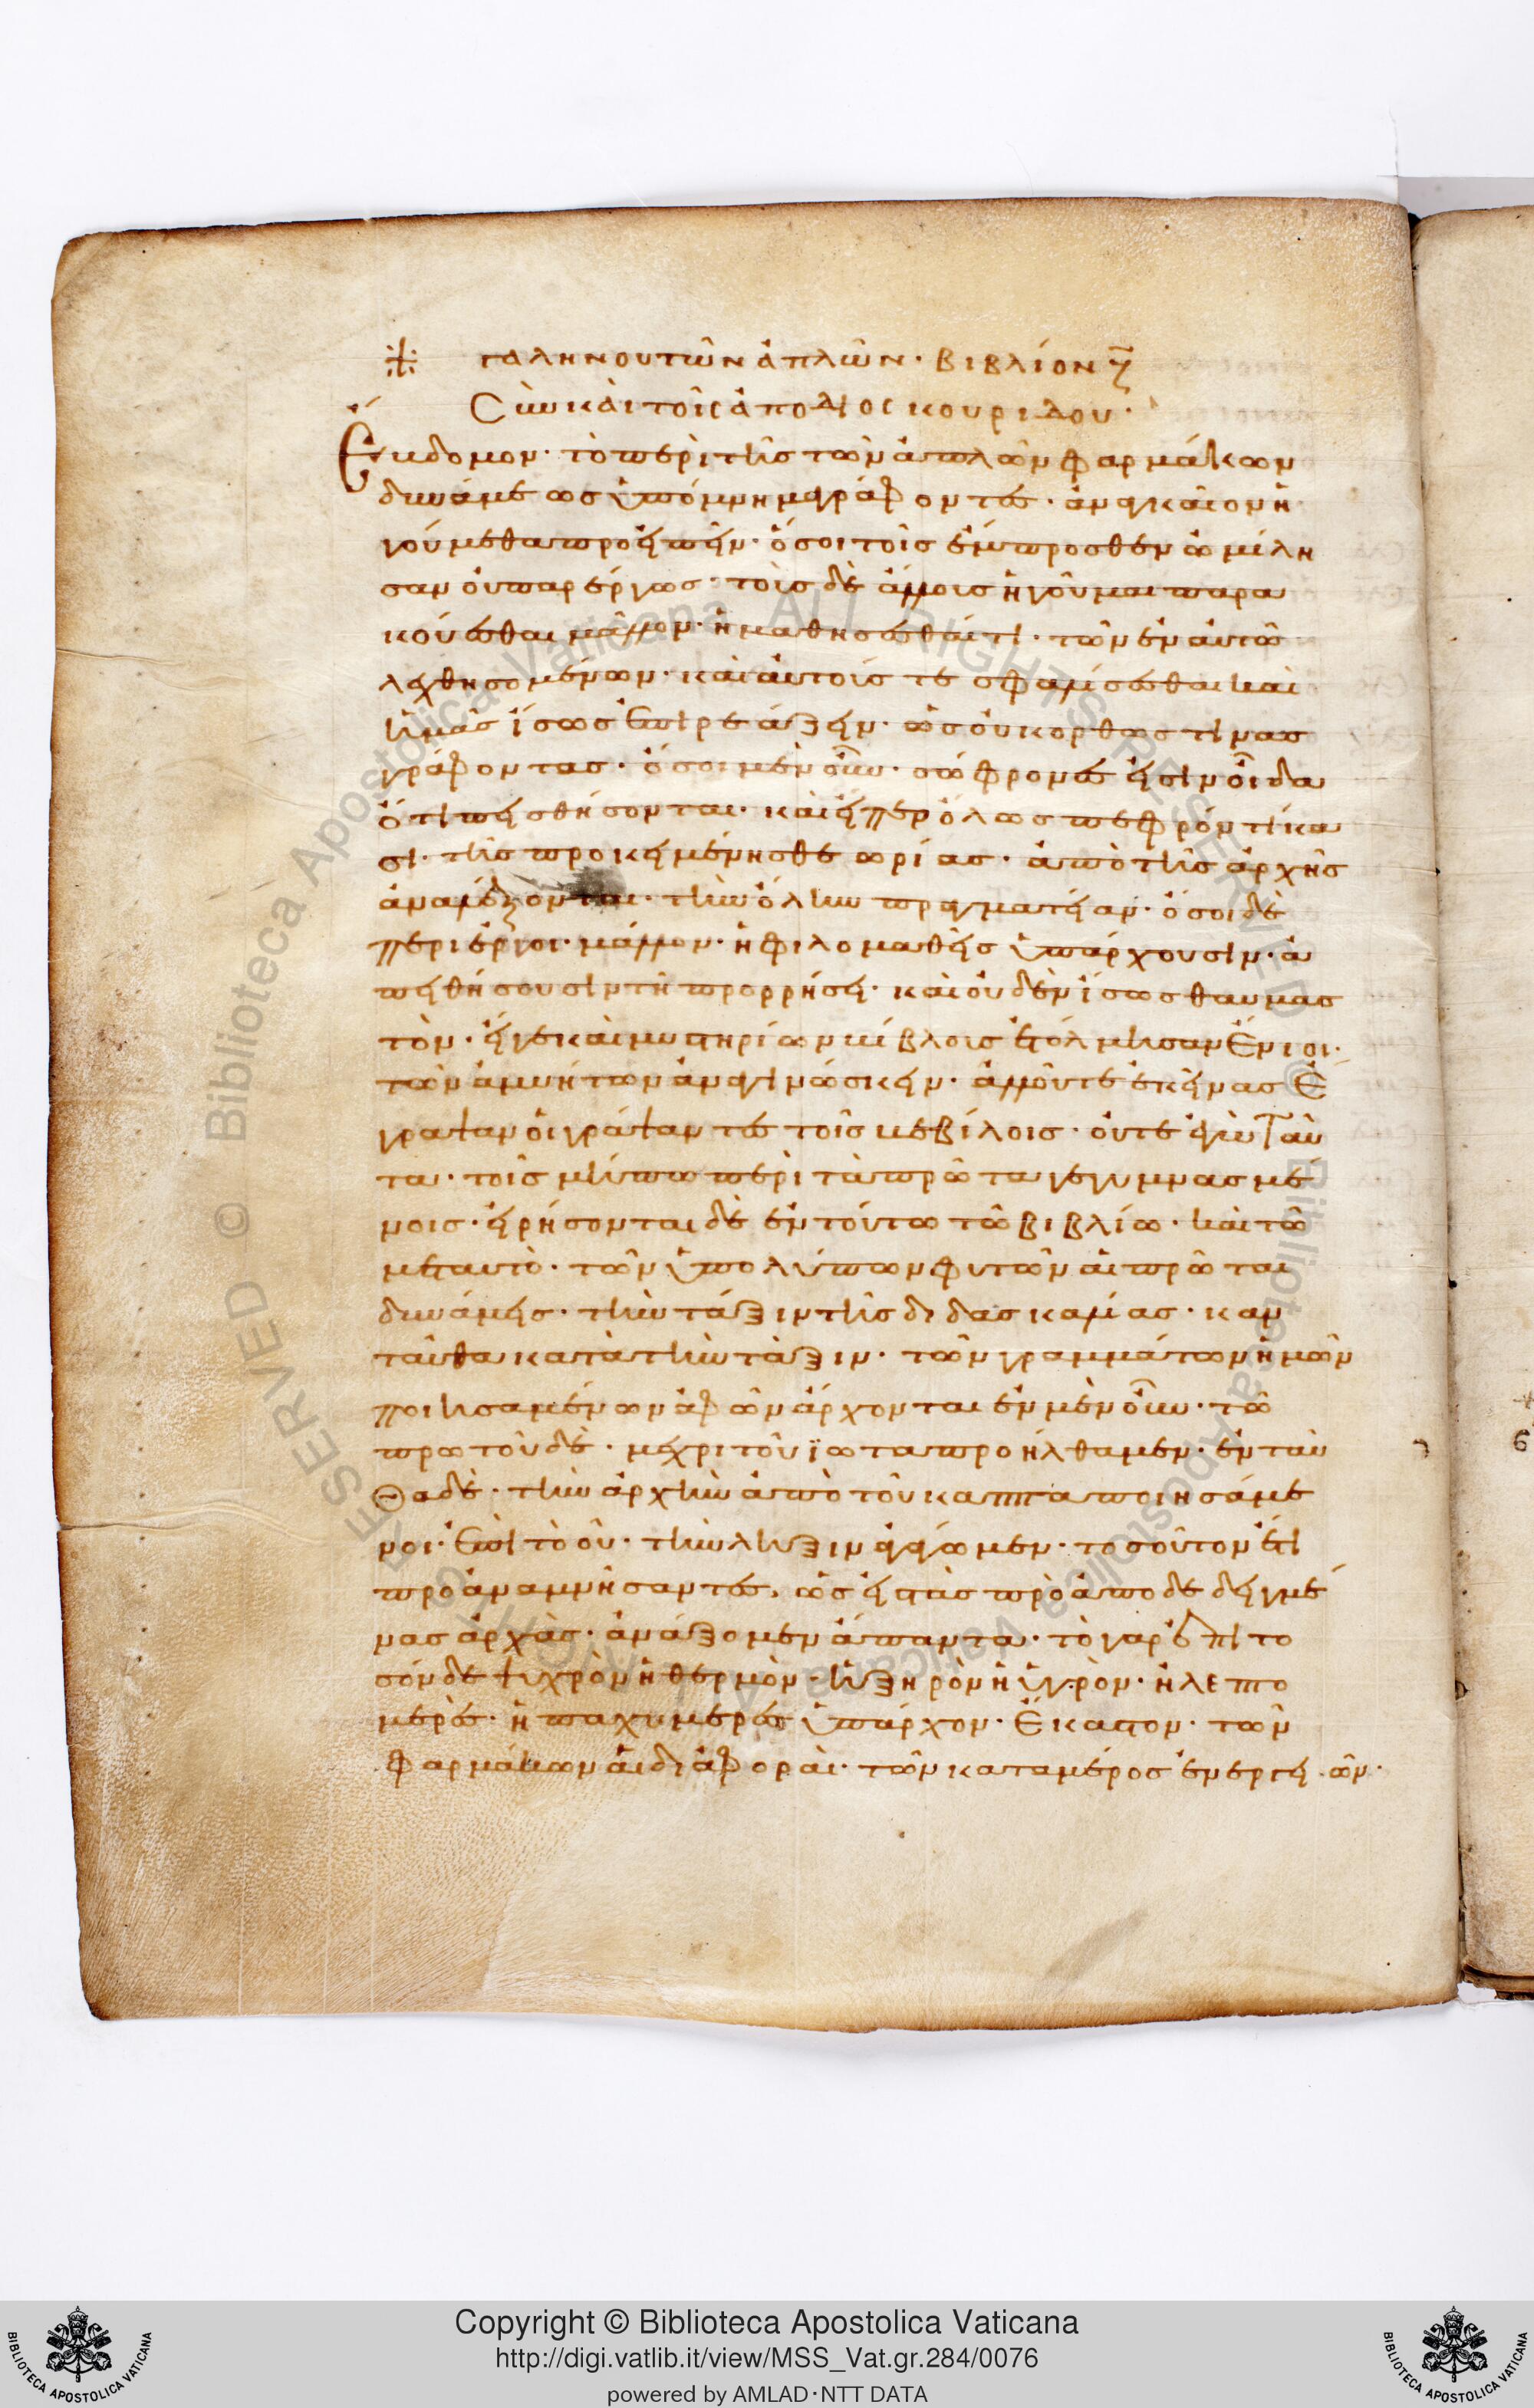 γαληνου τῶν ἁπλῶν· βιβλίον ζ
Σὺν καὶ τοῖς ἀπὸ διοσκουρίδου·
Ἕβδομον· τὸ περὶ τῆς τῶν ἁπλῶν φαρμάκων
δυνάμεως ὑπόμνημα γράφοντες· ἀναγκαῖον ἡ
γούμεθα προειπεῖν· ὅσοι τοῖς ἔμπροσθεν ὡμίλη
σαν οὐ παρέργως· τοῖς δὲ ἄλλοις ἡγοῦμαι παρα
κούεσθαι μᾶλλον· ἢ μαθήσεσθαί τι· τῶν ἐν αὐτῶ
λεχθησομένων· καὶ αὐτούς τε σφαλίσεσθαι καὶ
ἡμᾶς ἴσως ἐπιρεάξειν· ὡς οὐκ ορθως τινας
γράφοντας· ὅσοι μὲν οὖν· σώφρονες εἰσὶν οἶδα
ὅτι πεισθήσονται· καὶ εἴπερ ὅλως πεφρόντικα
σι· τῆς προκειμένης θεωρίας· ἀπὸ τῆς ἀρχῆς
ἀναλέξονται· τὴν ὅλην πραγματείαν· ὅσοι δὲ
περιέργοι· μάλλον· ἢ φιλομαθεῖς ὑπάρχουσιν· ἀ
πειθήσουσιν τῆ προρρήσει· καὶ οὐδὲν ἴσως θαυμασ
τὸν· εἴγε καὶ μυστηρίων βίβλοις ἐτόλμησαν ἔνιοι·
τῶν ἀμυήτων ἀναγινώσκειν· ἀλλ' οὔτε ἐκείνας ἔ
γραψαν οἱ γράψαντες τοῖς βεβίλοις· οὔτε ἐγὼ ταῦ
τα· τοῖς μήπω περὶ τὰ πρῶτα γεγυμνασμέ
νοις· εἰρήσονται δὲ ἐν τούτω τῶ βιβλίω· καὶ τῶ
μεταυτὸ· τῶν ὑπολύπων φυτῶν αἱ πρῶται
δυνάμεις· τὴν τάξιν τῆς διδασκαλίας· καν
ταῦθα κατὰ τὴν τάξιν· τῶν γραμμάτων ἡμῶν
ποιησαμένων ἀφ ὧν ἄρχονται ἐν μὲν οὖν· τῶ
πρὸ τοῦδὲ· μέχρι τοῦ ϊωτα προήλθαμεν· ἐνταῦ
θα δὲ· τὴν ἀρχὴν ἀπὸ τοῦ καππα ποιησάμε
νοι· ἐπὶ τὸ οὖ· τὴν λῆξιν ἀγάγωμεν· τοσοῦτον ἔτι
προαναμνήσαντες, ὡς εἰς τὰς προαποδεδειγμέ
νας ἀρχὰς· ἀνάξομεν ἅπαντα· τὸ γαρ ἐπὶ το
σόνδε ψυχρὸν ἢ θερμὸν· ἢ ξηρὸν ἢ ὑγρὸν· ἢ λεπτο
μερὲς· ἢ παχυμερὲς ὑπάρχον· ἕκαστον· τῶν
φαρμάκων αἱ διάφοραὶ· τῶν καταμέρος ἐνεργειῶν·
Copyright © Biblioteca Apostolica Vaticana
http://digi.vatlib.it/view/MSS_Vat.gr.284/0076
powered by AMLAD·NTT DATA